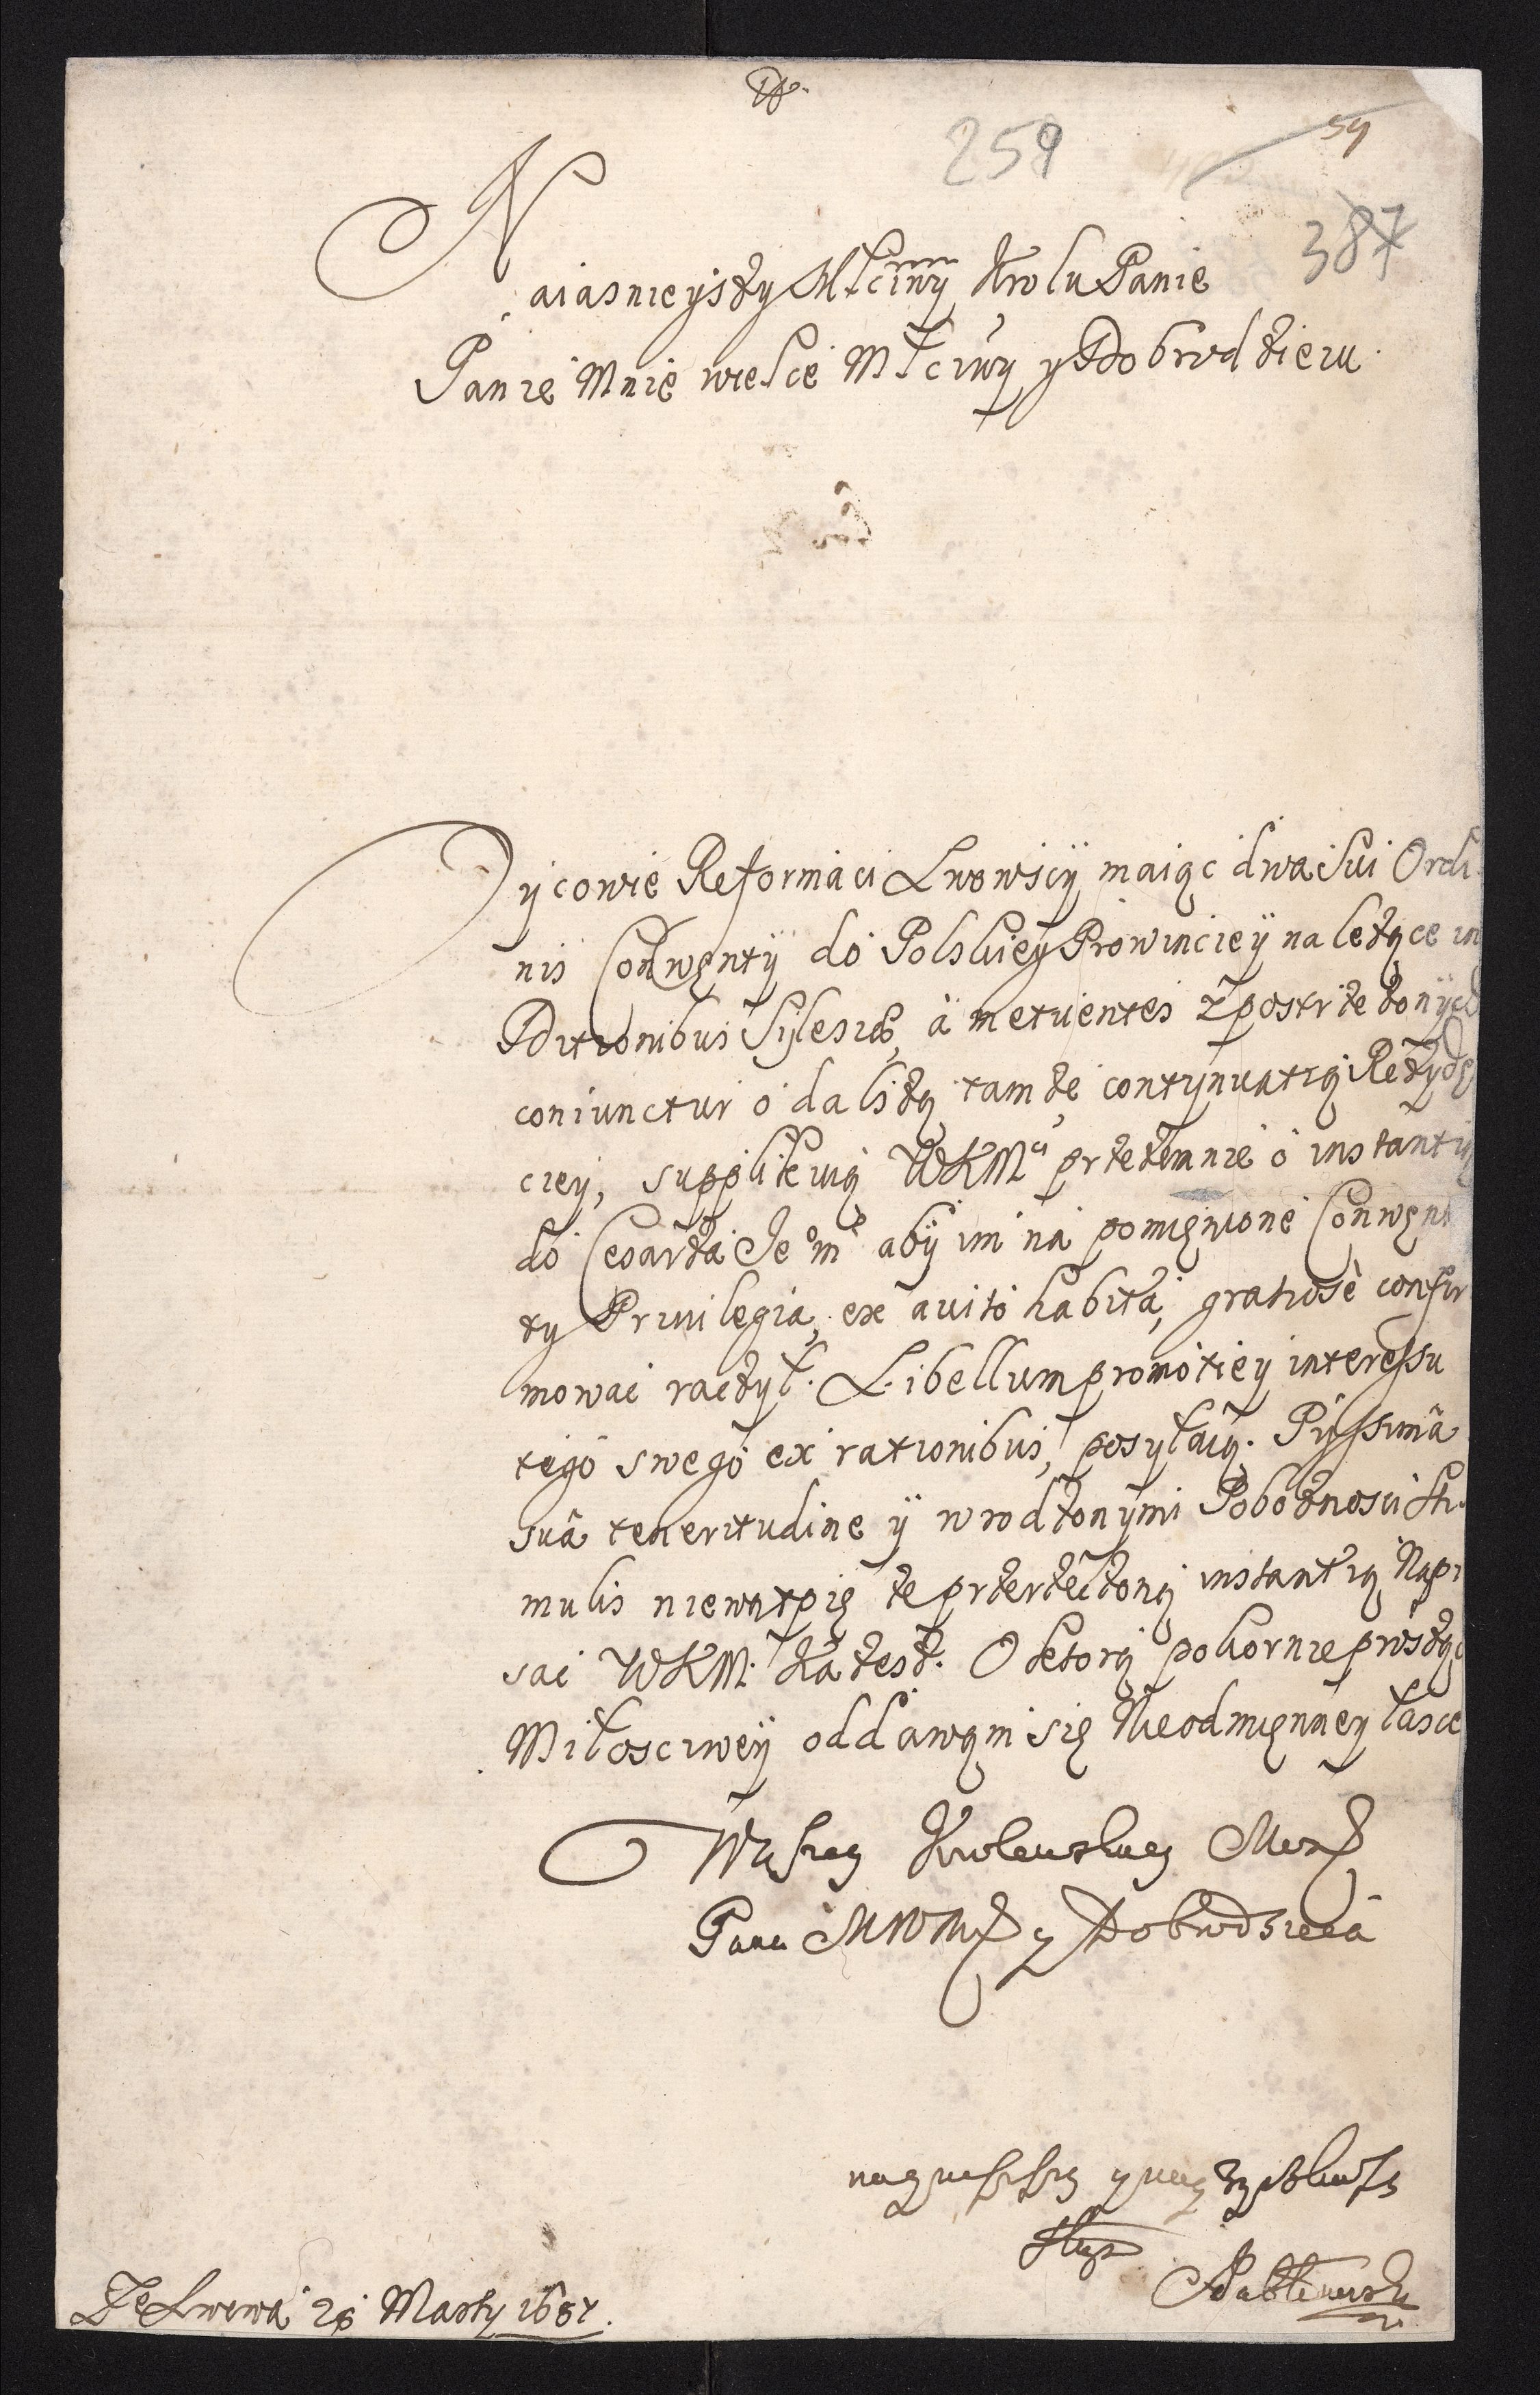 259
59
387
Naiasnieyszy Młciwy Krolu Panie
Panie Mnie wielce Młciwy y Dobrodzieiu.
Oycowie Reformaci Lwowscy maiąc dwa sui Ordi
nis Conwenty do Polskiey Prowinciey należące in
Ditionibus Sylesiæ, à metuentes z postrzeżonych
coniunctur o dalszą tamże contynuatią Rezyde
ciey, supplikuią WKMci przezemnie o instantią
do Cesarza Je° m° aby im na pomienione Conwen
ty Privilegia, ex avito habita, gratiosè confir
mowac raczył. Libellum promotiey interessu
tego swego ex rationibus, posyłaią. Piissimâ
suâ teneritudine y wrodzonymi Pobożnosci sti
mulis niewątpię że przerzeczoną instantią Napi
sac WKM. każesz. O ktorą pokornie prosząc
Miłosciwey oddawam się Nieodmienney łasce
Waszey Krolewskiey Mci
Pana MWM y Dobrodzieia
nayniszszy y nayzyczliwszy
sługa
SJabłonowski
Ze Lwowa 28 Marty 1687.